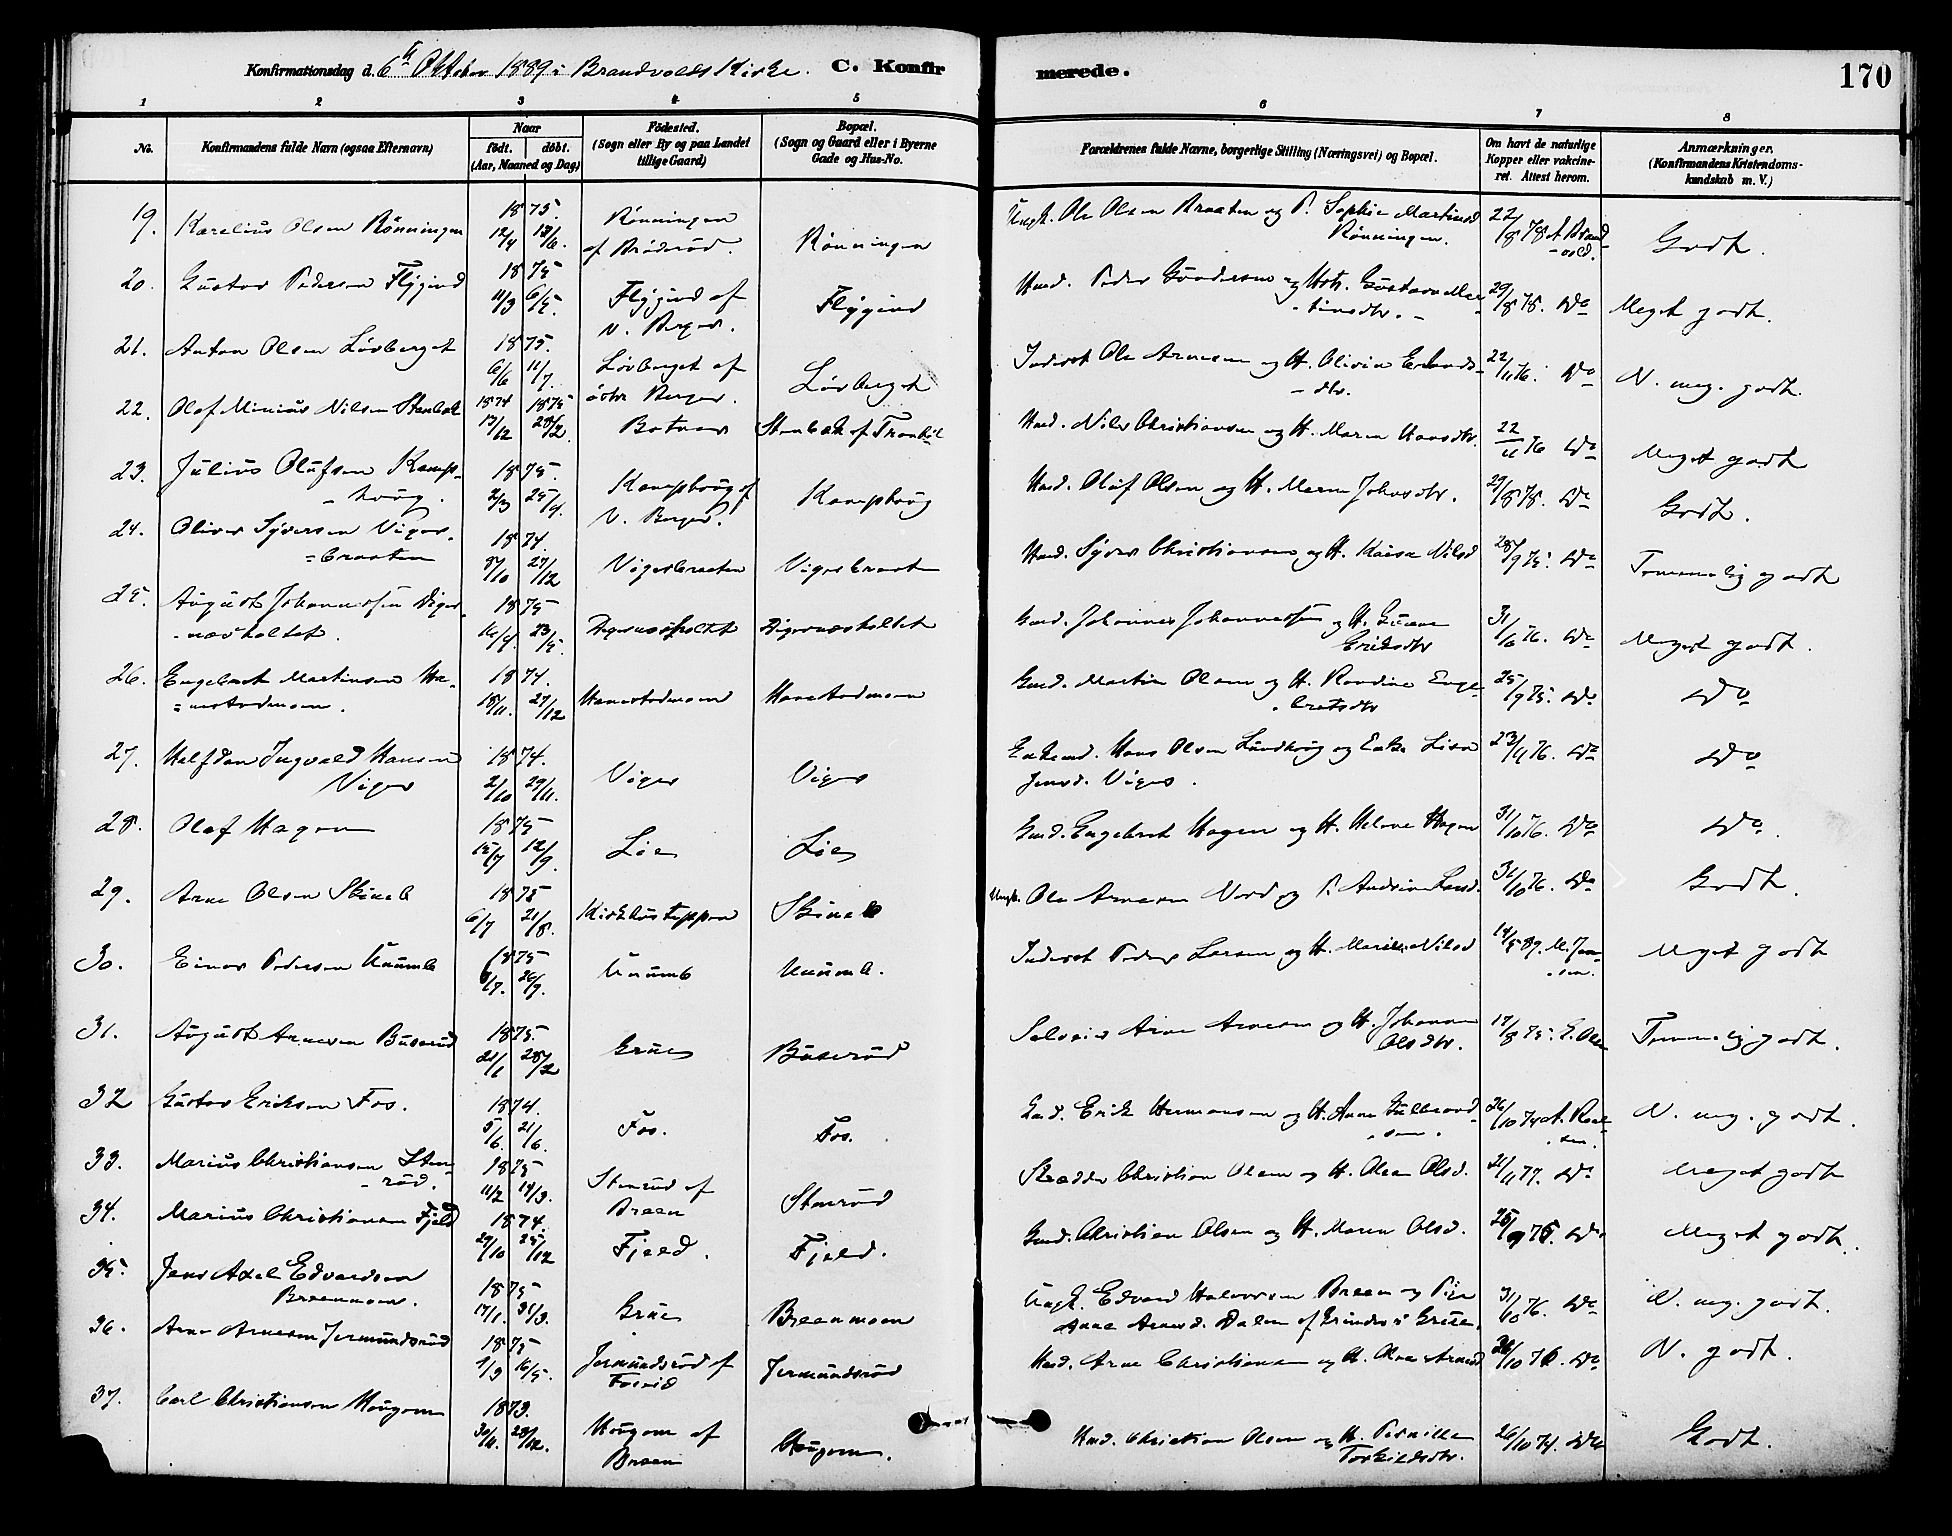 Konfirmationsdag d. 6te Oktober 1889 i Brandvolds Kirke. C. Konfirmerede. 170
1 2 3 4 5 6 7 8
No. Konfirmandens fulde Navn (ogsaa Efternavn) Naar födt. döbt. (Aar, Maaned og Dag) Födested. (Sogn eller By og paa Landet tillige Gaard) Bopæl. (Sogn og Gaard eller i Byerne Gade og Hus-No. Forældrenes fulde Navne, borgerlige Stilling (Næringsvei) og Bopæl. Om havt de naturlige Kopper eller vakcineret. Attest herom. Anmærkninger. (Konfirmandens Kristendomskundskab m. V.)
19. Karelius Olsen Rönningen 1875. 12/4 13/6. Rönningen af Bröderöd. Rönningen Ungk. Ole Olsen Braaten og P. Sophie Martinsd Rönningen. 22/8 78 A Brandvold. Godt.
20. Gustav Pedersen Flygind 1875 11/3 6/5. Flygind af N. Berger. Flygind Hmd. Peder Gundersen og Hstr. Gustava Martinsdtr. 29/8 78. Do Meget godt.
21. Anton Olsen Lövberget 1875. 6/6 11/7. Lövberget af östre Berger. Lövberget Inderst Ole Arnesen og H. Olivia Erlandsdtr. 22/11 76. Do N. meg. godt.
22. Olaf Minius Nilsen Stenbæk 1874 1875 13/12 28/2. Botner Stenbæk af Tranböl Hmd. Nils Christiansen og H. Maren Hansdtr. 22/11 76 Do Meget godt
23. Julius Olufsen Kampshoug. 1875. 2/3 25/4. Kampshoug af N. Berger. Kampshoug Hmd. Oluf Olsen og H. Maren Johnsdtr. 29/8 78. Do Godt.
24. Oliver Syversen Vigersbraaten 1874. 8/10 27/12 Vigersbraaten Vigersbraaten Hmd. Syver Christiansen og H. Kaisa Nilsd 28/9 75. Do Temmelig godt
25. August Johannessen Digernæsholtet. 1875 16/4. 23/5. Digernæsholtet Digernæsholtet Gmd. Johannes Johannessen og H. Gunne Eriksdtr 31/10 76. Do Meget godt.
26. Engebret Martinsen Hanestadmoen. 1874. 18/11. 27/12 Hanestadmoen Hanestadmoen Gmd. Martin Olsen og H. Randine Engebretsdtr 25/9 75. Do Do
27. Halfdan Ingvald Hansen Viger 1874. 2/10 29/11. Viger Viger Enkemd. Hans Olsen Lundhoug og Enke Lisa Jensd. Viger. 23/11 76. Do Do
28. Olaf Hagen 1875 15/7 12/9. Lier Lier Gmd. Engebret Hagen og H. Helene Hagen 31/10 76. Do Do.
29. Arne Olsen Skineb 1875 6/7 21/8. Kirkhustoppen Skineb Ungk. Ole Arnesen Nord og P. Andrine Larsd. 31/10 76. Do Godt.
30. Einar Pedersen Uaumb 1875 26/9. Uaumb Uaumb. Inderst Peder Larsen og H. Marthe Nilsd 14/5 89. M. Jensen. Meget godt
31. August Arnesen Buserud 1875. 21/1 28/2 Grue Buserud Selveier Arne Arnesen og H. Johanne Olsdtr. 17/8 75. E. Olsen Temmelig godt.
32 Gustav Eriksen Fos. 1874. 5/6. 21/6. Fos. Fos. Gmd. Erik Hermansen og H. Anne Gulbrandsen. 26/10 74 A. Roelsen. N. meg. godt.
33. Marius Christiansen Stenröd. 1875 11/2 14/3. Stenröd af Breen Stenröd Skrædder Christian Olsen og H. Olea Olsd. 21/11 77. Do Meget godt
34. Marius Christiansen Fjeld 1874. 29/10 25/12 Fjeld. Fjeld. Gmd. Christian Olsen og H. Maren Olsd. 25/9 75. Do Meget godt.
35. Jens Axel Edvardsen Breenmoen. 1875 17/1. 31/3. Grue Breenmoen Ungk. Edvard Halvorsen Breen og Pige Anne Arnesd. Dalen af Grinder i Grue. 31/10 76. Do N. meg. godt.
36. Arne Arnesen Jermundsröd 1875 1/3 16/5. Jermundsröd af Jermundsröd Hmd. Arne Christiansen og H. Olea Arnesd 26/10 76. Do N. godt.
37. Carl Christiansen Mougom 1873. 30/11. 28/12. Mougom af Breen Mougom. Hmd. Christian Olsen og H. Pernille Torkildsdtr. 26/10 74. Do Godt.